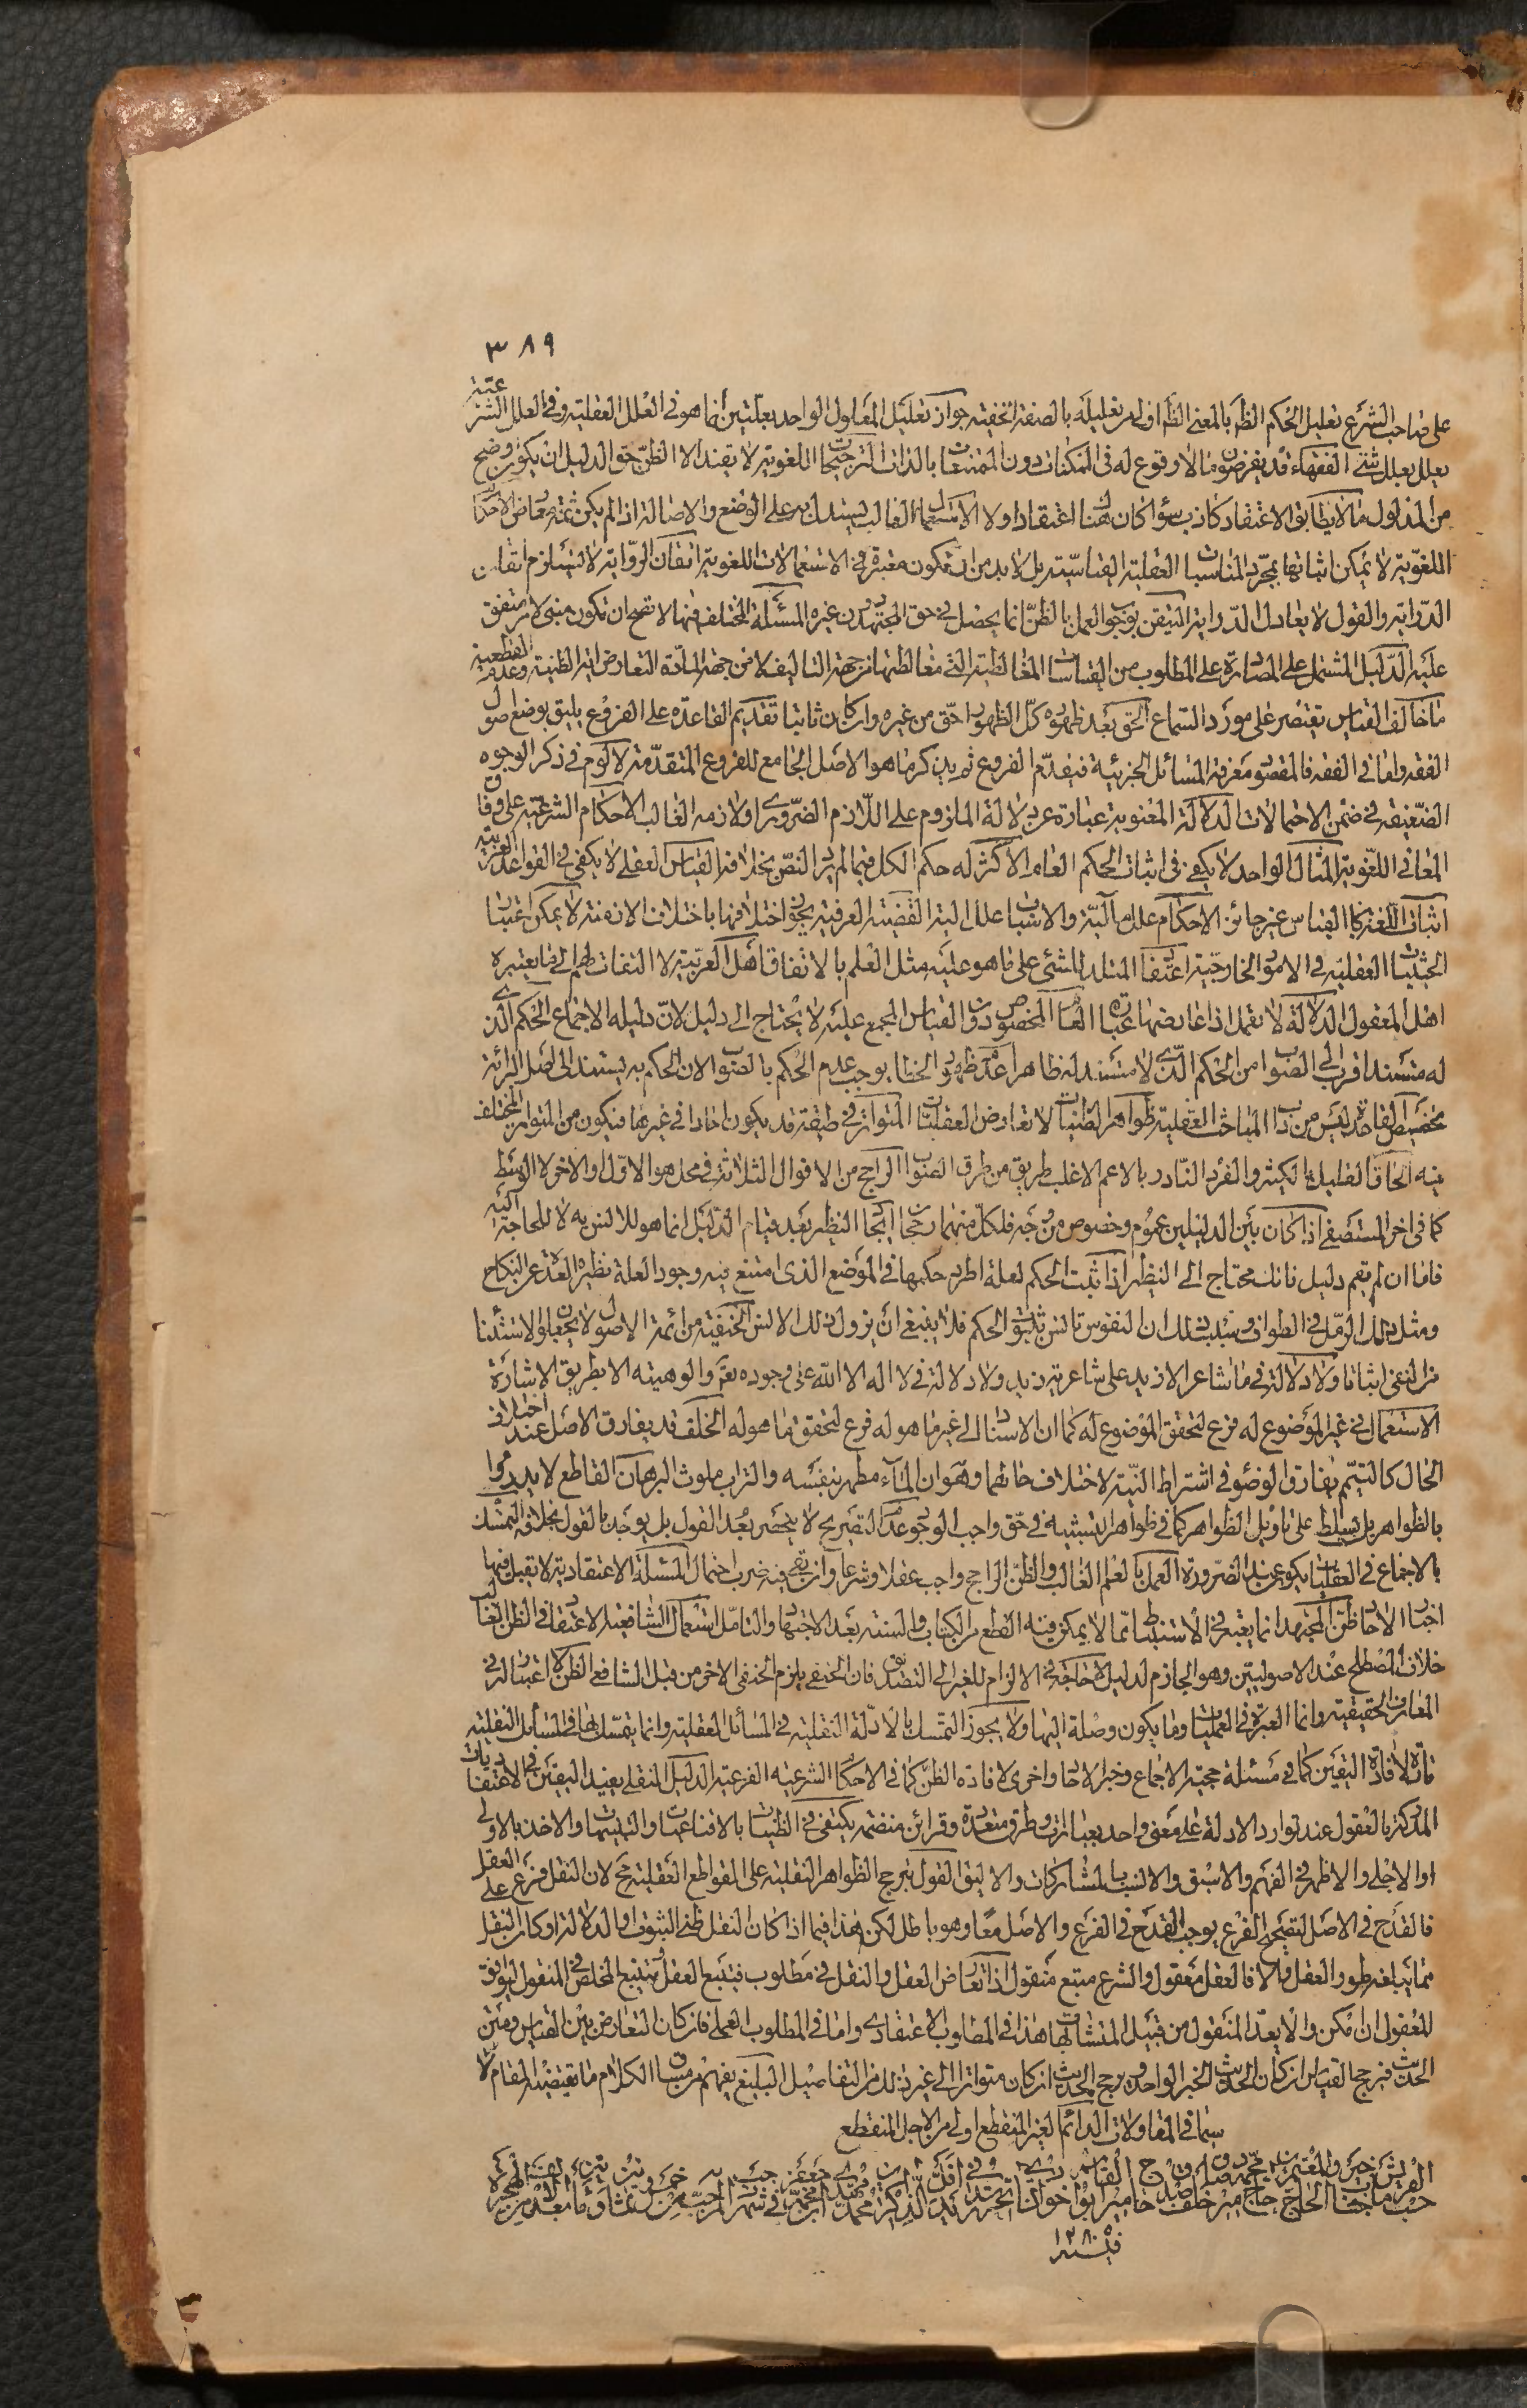 ٣٨٩
على صاحب الشرع تعليل الحكم الظ بالمعنى الظ اولى من تعليله بالصفة الخفية جواز تعليل المعلول الواحد بعلتين انما هو فى العلل العقلية وفى العلل الشرعية
يعلل بعلل شتى الفقهاء قد يفرضون ما لا وقوع له فى الممكنات دون الممتنعات بالذات الترجيحات اللغوية لا تفيد الا الظن حق الدليل ان يكون اوضح
من المدلول ما لا يطابق الاعتقاد كاذب سواء كان هنا اعتقاد او لا الاستعمال الغالب يستدل به على الوضع والاصالة اذا لم يكن ثمة معارض الاحكام
اللغوية لا يمكن اثباتها بمجرد المناسبات العقلية القياسية بل لا بد من ان تكون معتبرة فى الاستعمالات اللغوية اتقان الرواية لا يستلزم اتقان
الدراية والقول لا يعادل الدراية التيقن بوجوب العمل بالظن انما يحصل فى حق المجتهد دون غيره المسئلة المختلف فيها لا تصح ان تكون مبنى لامر متفق
عليه الدليل المشتمل على المصادرة على المطلوب من القياسات المغالطية التى مغالطتها من جهة التاليف لا من جهة المادة التعارض اية الظنية وعدمه القطعية
ما خالف القياس يقتصر على مورد السماع الحق بعد ظهوره كل الظهور احق من غيره وان كان ثانيا تقديم القاعدة على الفروع يليق بوضع اصول
الفقه واما فى الفقه فالمقصود معرفة المسائل الجزئية فيقدم الفروع ثم يذكر ما هو الاصل الجامع للفروع المتقدمة لا لوم فى ذكر الوجوه
الضعيفة فى ضمن الاحتمالات الدلالة المعنوية عبارة عن دلالة الملزوم على اللازم الضرورى او لازمه الغالب الاحكام الشرعية على وفاق
المعانى اللغوية المثال الواحد لا يكفى فى اثبات الحكم العام الاكثر له حكم الكل فيما لم يرد النص بخلافه القياس العقلى لا يكفى فى القواعد العربية
اثبات اللغة بالقياس غير جائز الاحكام علل مآلية والاسباب علل الية القضية العرفية يجوز اختلافها باختلاف الازمنة لا يمكن اعتبار
الحيثيات العقلية فى الامور الخارجية اعتقاد المقلد للشئ على ما هو عليه مثل العلم بالاتفاق اهل العربية لا التفات لهم الى ما يعتبره
اهل المعقول الدلالة لا تعمل اذا عارضها عبارة العام المخصوص دون القياس المجمع عليه لا يحتاج الى دليل لان دليله الاجماع الحكم الذى
له مستند اقرب الى الصواب من الحكم الذى لا مستند له ظاهرا عدم ظهور الخطا يوجب عدم الحكم بالصواب لان الحكم به يستند الى اصل البرائة
تخصيص القاعدة ليس من داب المباحث العقلية ظواهر الظنيات لا تعارض العقليات المتواتر فى طبقة قد يكون احادا فى غيرها فيكون من المتواتر المختلف
فيه الحاق القليل بالكثير والفرد النادر بالاعم الاغلب طريق من طرق الصواب الراجح من الاقوال الثلاثة فى محل هو الاول او الاخر لا الوسط
كما فى اخر المستصفى اذا كان بين الدليلين عموم وخصوص من وجه فلكل منهما رجحان اتيان النظير بعد قيام الدليل انما هو للانس به لا للحاجة اليه
فاما ان لم يقم دليل فانك محتاج الى النظير اذا ثبت الحكم لعلة اطرد حكمها فى الموضع الذى امتنع فيه وجود العلة نظيره العدة عن النكاح
ومثل ذلك الرمل فى الطواف وسبب ذلك ان النفوس تانس بثبوت الحكم فلا ينبغى ان يزول ذلك الانس الحنفية من ائمة الاصول لا يجعلون الاستثناء
من النفى اثباتا ولا دلالة فى ما شاعر الا زيد على شاعرية زيد ولا دلالة فى لا اله الا الله على وجوده تعم والوهيته الا بطريق الاشارة
الاستعمال فى غير الموضوع له فرع لتحقق الموضوع له كما ان الاسناد الى غير ما هو له فرع لتحقق ما هو له الخلف قد يفارق الاصل عند اختلاف
الحال كالتيمم يفارق الوضوء فى اشتراط النية لاختلاف حالهما وهو ان الماء مطهر بنفسه والتراب ملوث البرهان القاطع لا يدرء
بالظواهر بل يسلط على تاويل الظواهر كما فى ظواهر التشبيه فى حق واجب الوجود عدم التصريح لا ينحصر بعد القول بل يوجد بالقول بخلافه التمسك
بالاجماع فى العقليات يكون عن بالضرورة العمل بالعلم الغالب والظن الراجح واجب عقلا وشرعا وان بقى فيه ضرب احتمال المسئلة الاعتقادية لا يقبل فيها
اخبار الاحاد ظن المجتهد انما يعتبر فى الاستنباط مما لا يمكن فيه القطع من الكتاب والسنة بعد الاجتهاد والتامل استعمال الشافعية الاعتقاد فى الظن الغالب
خلاف المصطلح عند الاصوليين وهو الجازم لدليل لا حاجة فى الالزام للغير الى التصديق فان الحنفى يلزم الحنفى الاخر من قبل الشافعى الظن لا اعتبار له فى
المعارف الحقيقية وانما العبرة فى العمليات وما يكون وصلة اليها ولا يجوز التمسك بالادلة النقلية فى المسائل العقلية وانما يتمسك بها فى المسائل النقلية
تارة لافادة اليقين كما فى مسئلة حجية الاجماع وخبر الاحاد واخرى لافادة الظن كما فى الاحكام الشرعية الفرعية الدليل النقلى يفيد اليقين فى الاعتقاديات
المدركة بالعقول عند توارد الادلة على معنى واحد بعبارات وطرق متعددة وقرائن منضمة يكتفى فى الظنيات بالاقناعيات والتنبيهات والاخذ بالاولى
او الاجلى والاظهر فى الفهم والاسبق والانسب بالمشاركات والاليق القول بترجيح الظواهر النقلية على القواطع العقلية مح لان النقل فرع على العقل
فالقدح فى الاصل لتصحيح الفرع يوجب القدح فى الفرع والاصل معا وهو باطل لكن هذا فيما اذا كان النقل ظنى الثبوت او الدلالة او كان النقل
مما يبلغه طور العقل والا فالعقل معقول والشرع متبع منقول اذا تعارض العقل والنقل فى مطلوب فيتبع العقل ثم يتبع المخلص فى المنقول ليوافق
المعقول ان امكن والا يعد المنقول من قبيل المتشابهات هذا فى المطلوب الاعتقادى واما فى المطلوب العملى فان كان التعارض بين القياس ومتن
الحديث فيرجح القياس ان كان الحديث الخبر الواحد ويرجح الحديث ان كان متواترا الى غير ذلك من التفاصيل البليغ يفهم من سياق الكلام ما يقتضيه المقام لا
سيما فى المقاولات الدائم الغير المنقطع اولى من الاجل المنقطع
١٢٨٠